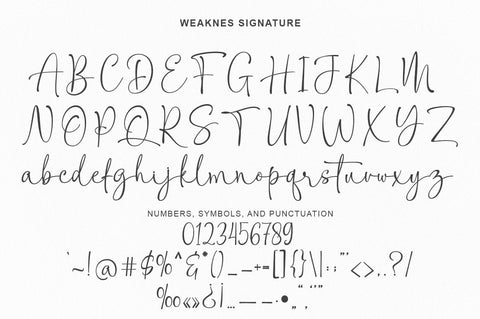 WEAKNES SIGNATURE
ABCDEFGHIJKLM
NOPQRSTUVWXYZ
abcdefghijklmnopqrstuvwxyz
NUMBERS, SYMBOLS, AND PUNCTUATION
0123456789
`~!@#$%^&*()_—+=[]{}\|:;"'<>,.?/
‰«»¿¡…–—·•„“‚‘’”